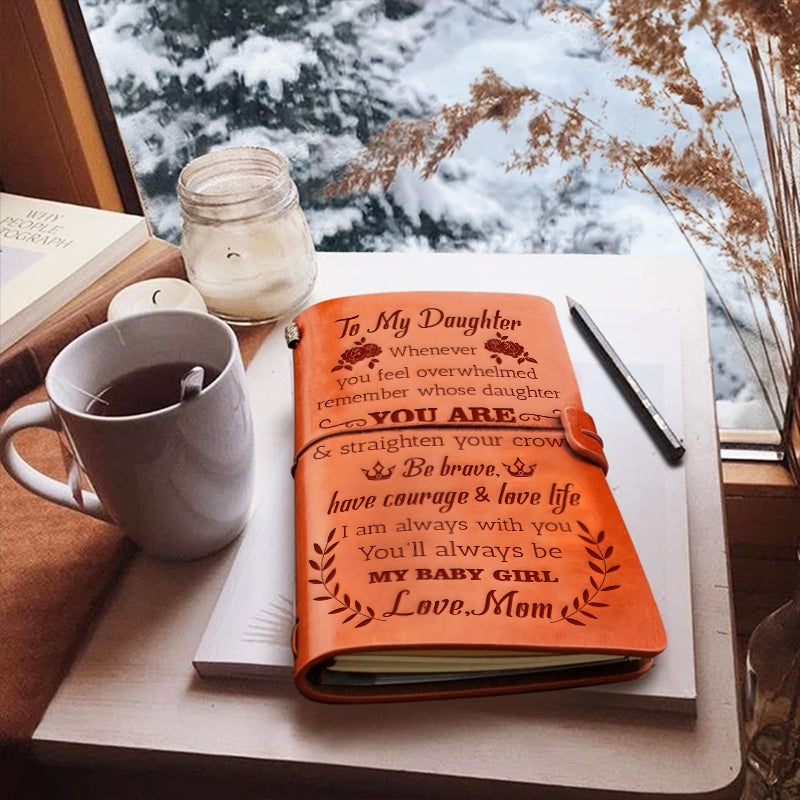 WHY
PEOPLE
PHOTOGRAPH
To My Daughter
Whenever
you feel overwhelmed
remember whose daughter
YOU ARE
& straighten your crow
Be brave,
have courage & love life
I am always with you
You'll always be
MY BABY GIRL
Love, Mom